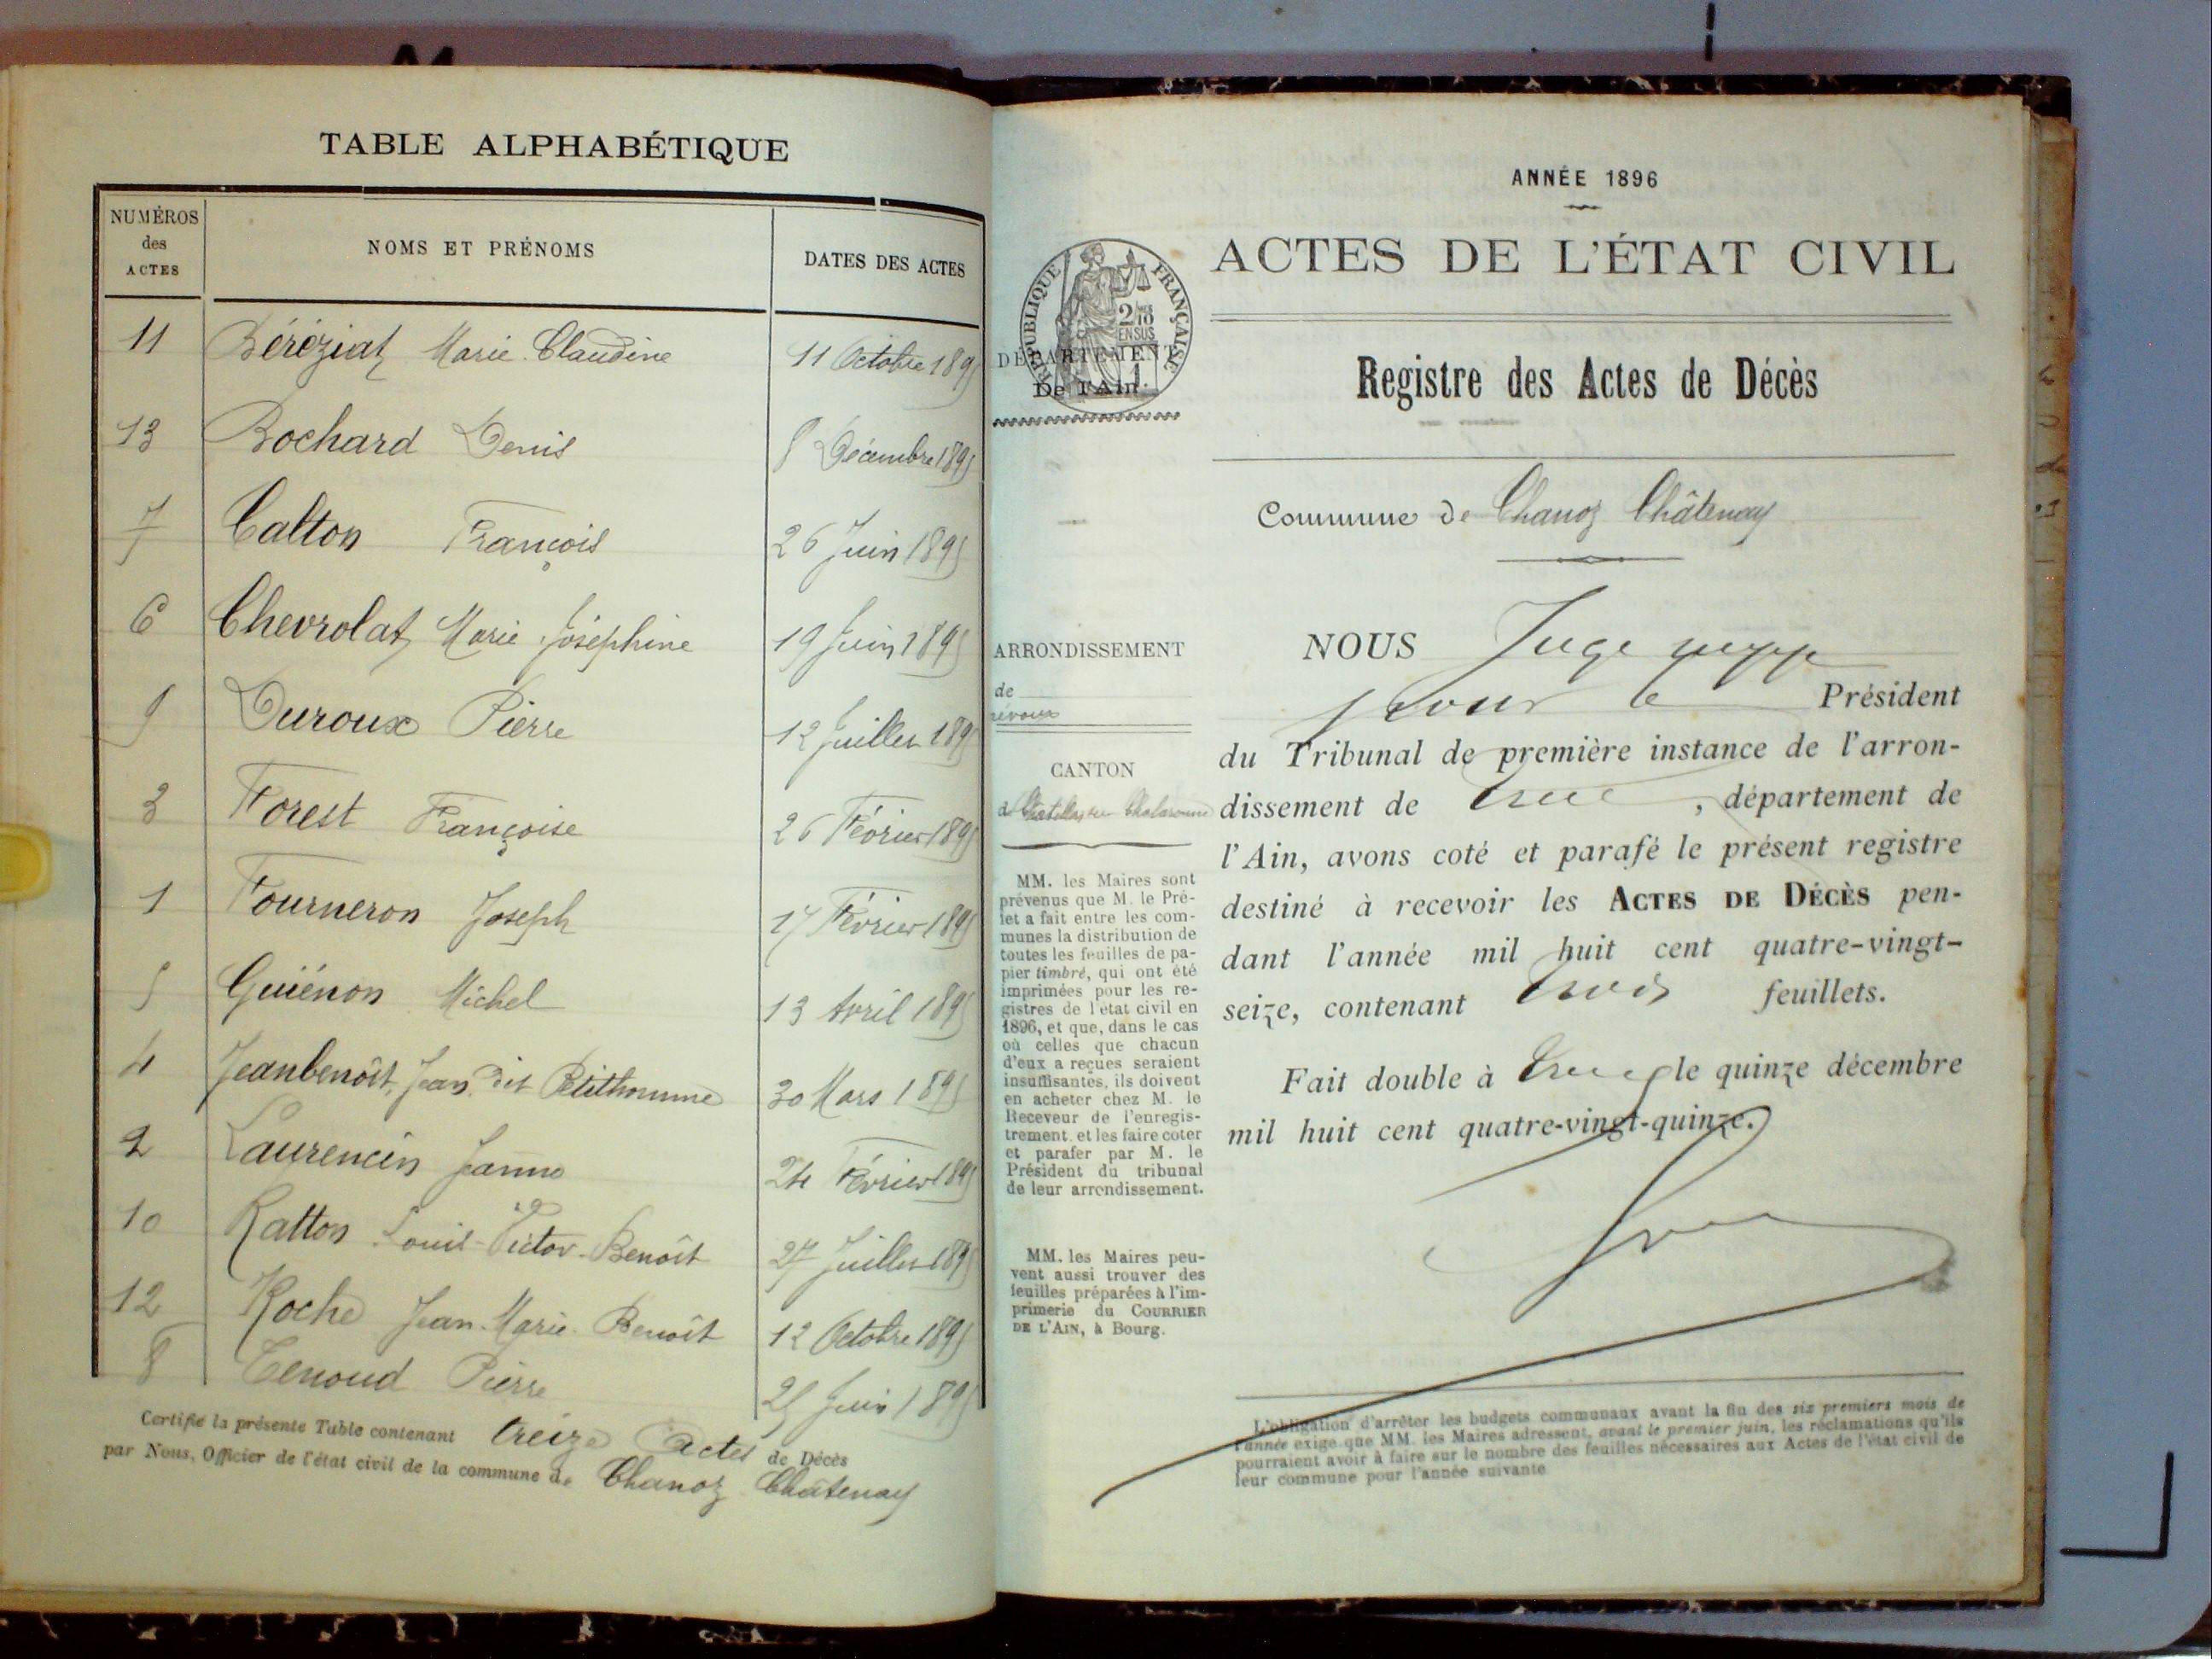 TABLE ALPHABÉTIQUE
NUMÉROS
des
ACTES
NOMS ET PRÉNOMS
DATES DES ACTES
11 Béréziat Marie Claudine 11 Octobre 1895
13 Bochard Denis 8 Décembre 1895
7 Calton François 26 Juin 1895
6 Chevrolat Marie Joséphine 19 Juin 1895
9 Duroux Pierre 12 Juillet 1895
3 Forest Françoise 26 Février 1895
1 Fourneron Joseph 17 Février 1895
5 Guiénon Michel 13 Avril 1895
4 Jeanbenoît, Jean dit Petithomme 30 Mars 1895
2 Laurencin Jeanne 24 Février 1895
10 Ratton Louis-Victor-Benoît 27 Juillet 1895
12 Roche Jean-Marie-Benoît 12 Octobre 1895
8 Tenoud Pierre Juin 1895
Certifié la présente Table contenant treize Actes de Décès
par Nous, Officier de l'état civil de la commune de Chanoz Châtenay
ANNÉE 1896
ACTES DE L'ÉTAT CIVIL
RÉPUBLIQUE FRANÇAISE
2/10
EN SUS
DÉPARTEMENT
De l'Ain.
Registre des Actes de Décès
Commune de Chanoz Châtenay
ARRONDISSEMENT
de
révoux
CANTON
de Chatillon sur Chalaronne
MM. les Maires sont
prévenus que M. le Pré-
fet a fait entre les com-
munes la distribution de
toutes les feuilles de pa-
pier timbré, qui ont été
imprimées pour les re-
gistres de l'état civil en
1896, et que, dans le cas
où celles que chacun
d'eux a reçues seraient
insuffisantes, ils doivent
en acheter chez M. le
Receveur de l'enregis-
trement et les faire coter
et parafer par M. le
Président du tribunal
de leur arrondissement.
MM. les Maires peu-
vent aussi trouver des
feuilles préparées à l'im-
primerie du COURRIER
DE L'AIN, à Bourg.
NOUS Juge
pour le Président
du Tribunal de première instance de l'arron-
dissement de , département de
l'Ain, avons coté et parafé le présent registre
destiné à recevoir les ACTES DE DÉCÈS pen-
dant l'année mil huit cent quatre-vingt-
seize, contenant trois feuillets.
Fait double à le quinze décembre
mil huit cent quatre-vingt-quinze.
L'obligation d'arrêter les budgets communaux avant la fin des six premiers mois de
l'année exige que MM. les Maires adressent, avant le premier juin, les réclamations qu'ils
pourraient avoir à faire sur le nombre des feuilles nécessaires aux Actes de l'état civil de
leur commune pour l'année suivante